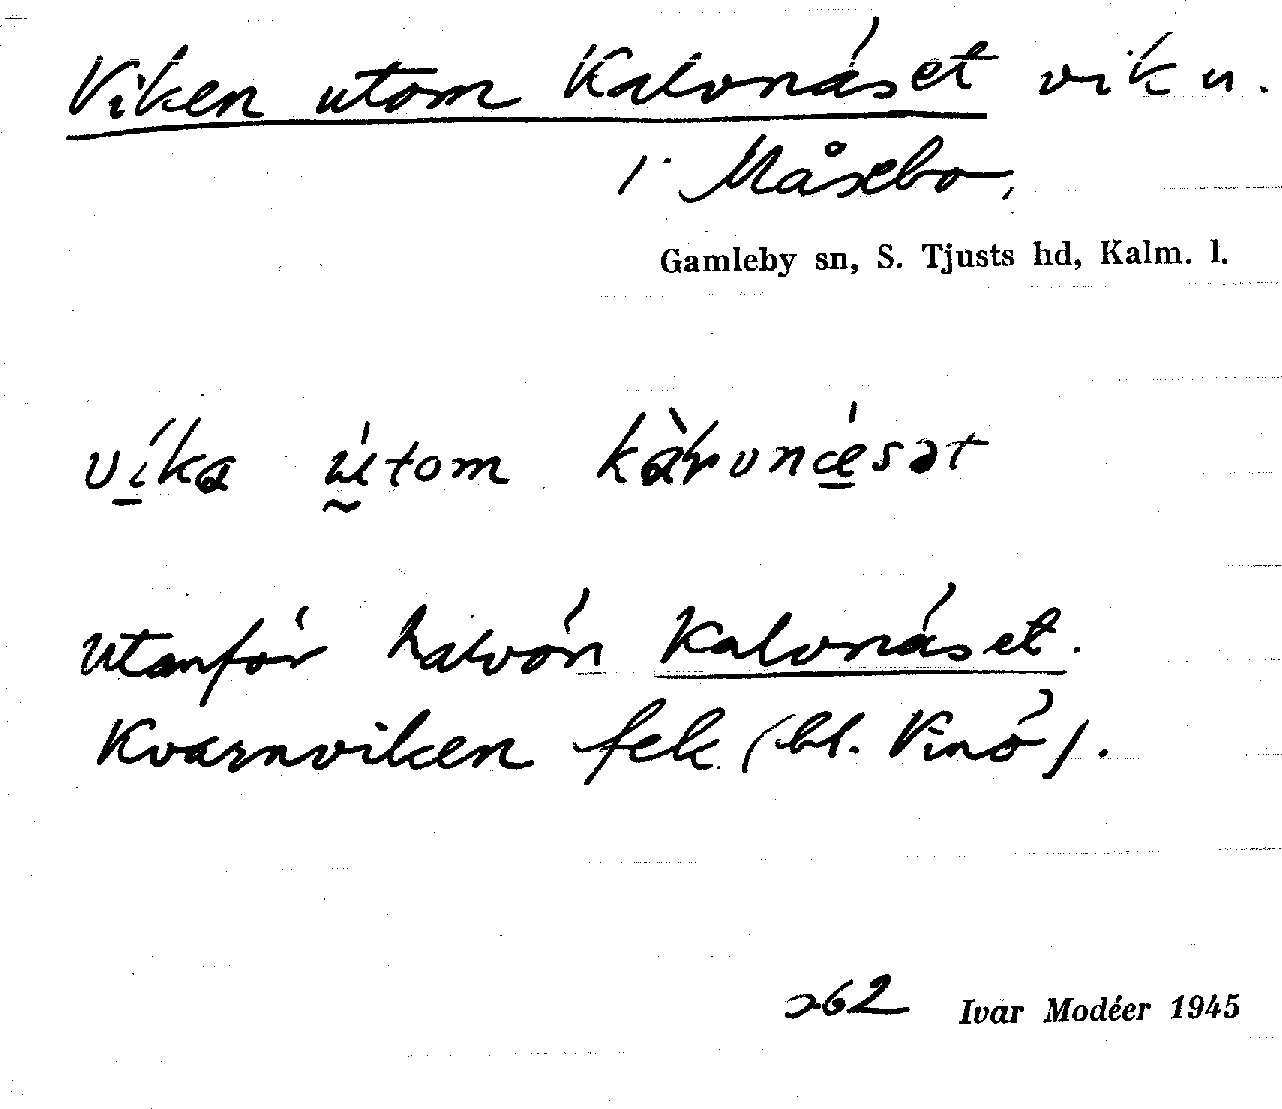 Viken utom Kalvnäset vik u.
i Måsebo,
Gamleby sn, S. Tjusts hd, Kalm. l.
utom
utanför halvön Kalvnäset.
Kvarnviken fek (bl. Vinö).
262 Ivar Modéer 1945